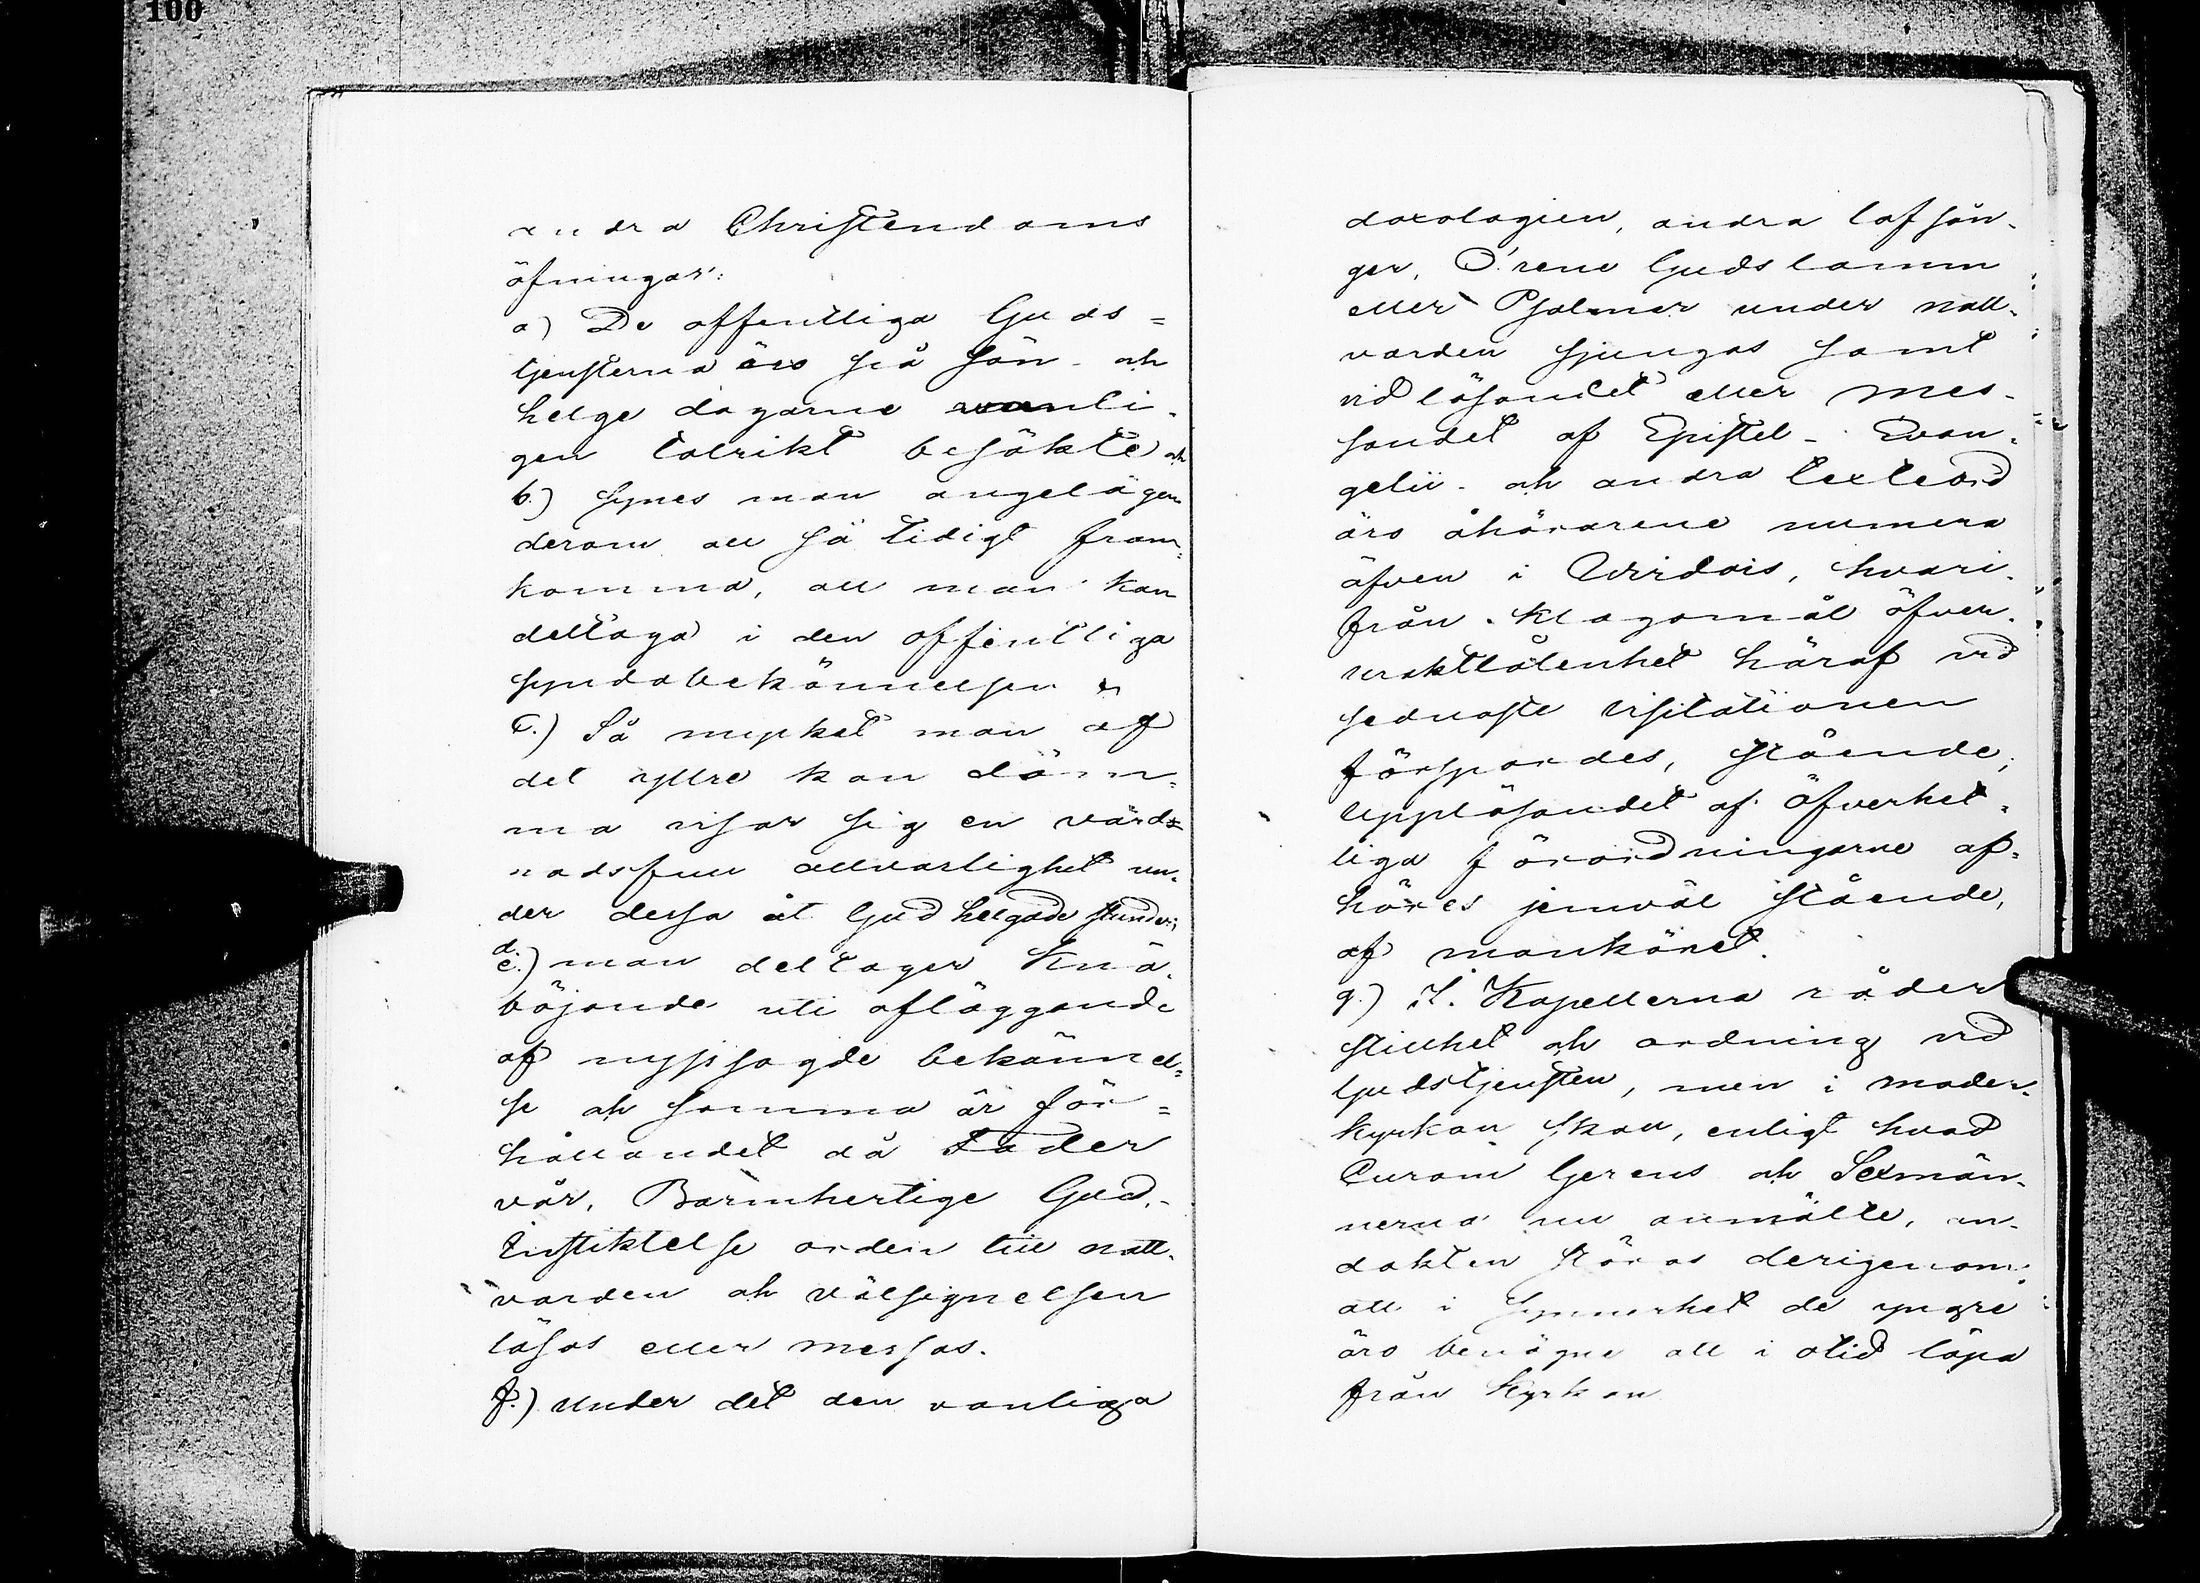 100
andra Christendoms
öfningar:
a) De offentliga Guds=
tjensterna äro på sön- och
helgedagarne vanli-
gen talrikt besökte och
b.) synes man angelägen
derom att så tidigt fram=
komma, att man kan
deltaga i den offentliga
syndabekännelsen
c.) Så mycket man af
det yttre kan döm=
ma visar sig en vård=
nadsfull allvarlighet un-
der dessa åt Gud helgade stunder;
d. e.) man deltager knä-
böjande uti afläggande
af nyssagde bekännel=
se och samma är för=
hållandet då Fader
vår, Barmhertige Gud,-
Instiktelse orden till natt-
varden och välsignelsen
läsas eller messas.
f.) Under det den vanliga
doxologien, andra lofsån-
ger, O! rene Guds lamm
eller Psalmer under natt-
varden sjungas samt
vid läsandet eller mes-
sandet af Epistel- Evan-
gelii- och andra texteord
äro åhörarene numera
äfven i Wirdois, hvari-
från klagomål öfver
uraktlåtenhet häraf vid
sednaste visitationen
förspordes, stående;
Uppläsandet af Öfverhet-
liga förordningarne af=
höres jemväl stående,
af mankönet.
g.) I Kapellerna råder
stillhet och ordning vid
Gudstjensten, men i moder-
kyrkan skall, enligt hvad
Curam Gerens och Sexmän-
nerna nu anmälte, an-
dakten störas derigenom
att i synnerhet de yngre
äro benägne att i otid löpa
från Kyrkan